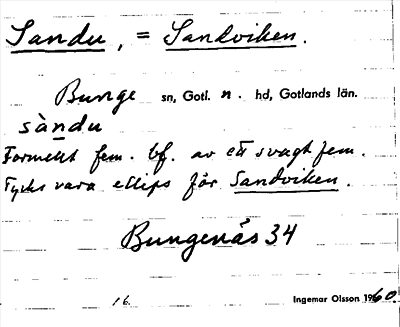 Sandu, = Sandviken.
Bunge sn, Gotl. n. hd, Gotlands län.
sàndu
Formellt fem. bf. av ett svagt fem.
Tycks vara ellips för Sandviken.
Bungenäs 34
16. Ingemar Olsson 1960.